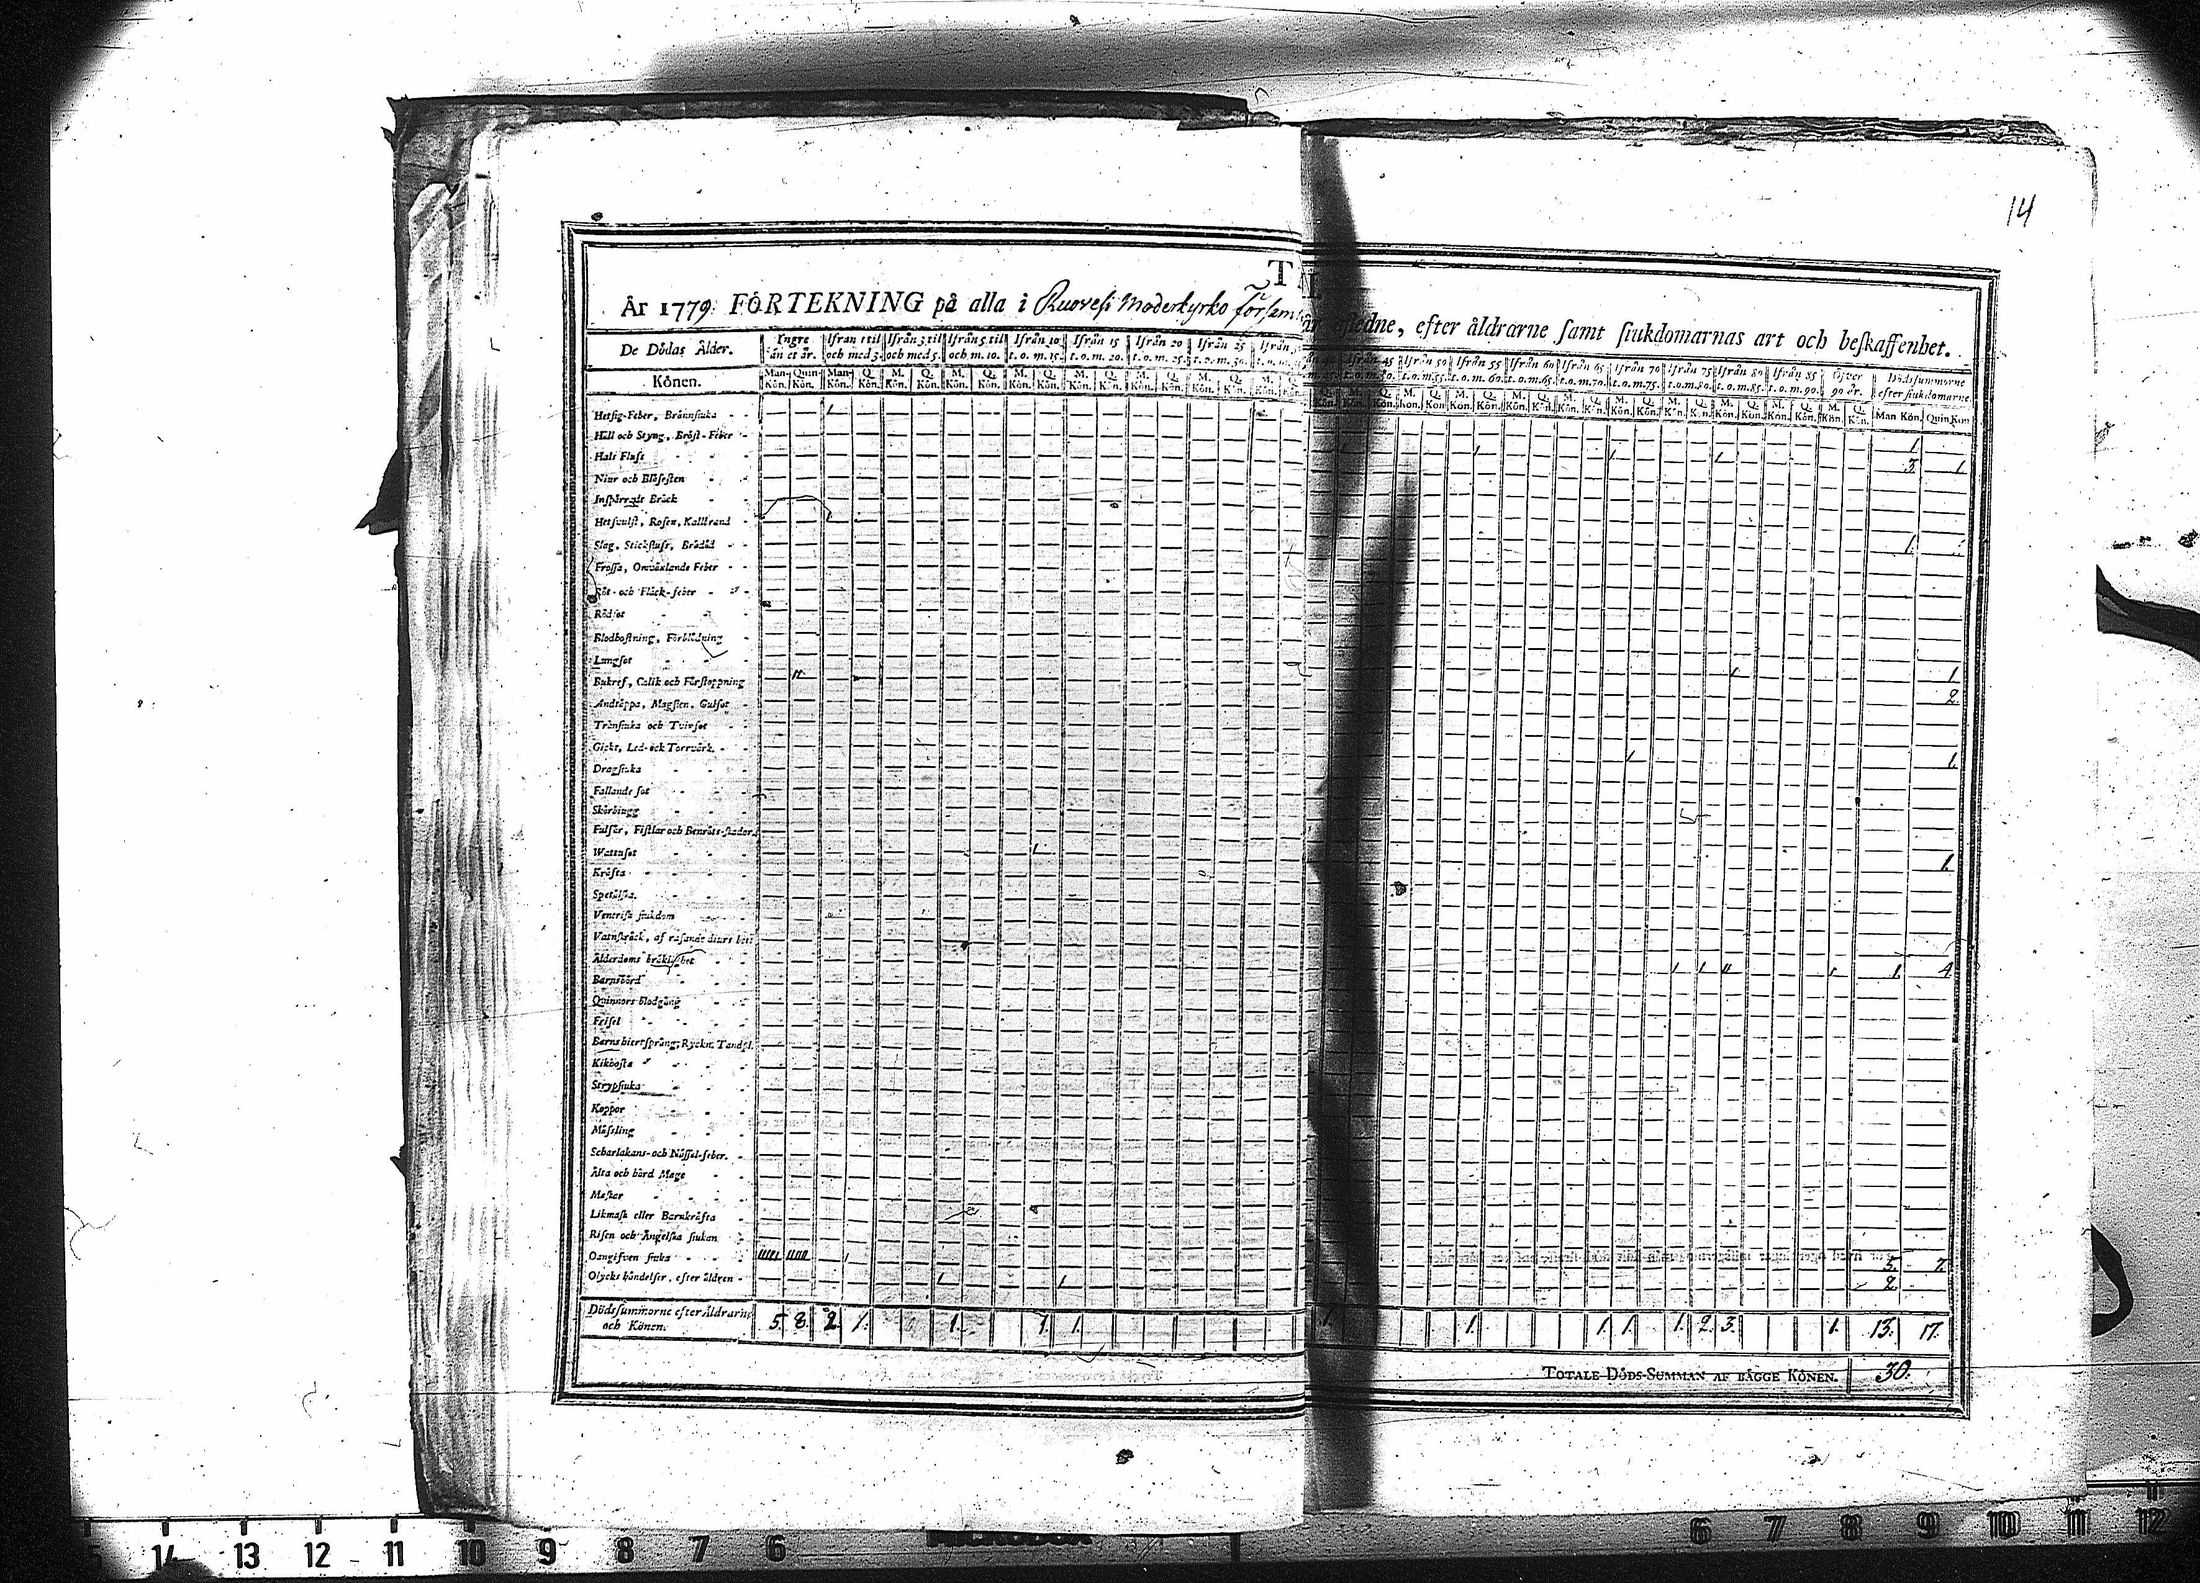 14
År 1779 FÖRTEKNING på alla i Ruovesi Moderkyrko Församl
efter åldrarne samt siukdomarnas art och beskaffenhet.
De Dödas Ålder. Yngre än et år. Ifrån 1 til och med 3. Ifrån 3. til och med 5. Ifrån 5. til och m. 10. Ifrån 10 t. o. m. 15. Ifrån 15 t. o. m. 20. Ifrån 20 t. o. m. 25. Ifrån 25 t. o. m. 30. Ifrån 45 Ifrån 50 t. o. m. 55. Ifrån 55 t. o. m. 60. Ifrån 60 t. o. m. 65. Ifrån 65 t. o. m. 70. Ifrån 70 t. o. m. 75. Ifrån 75 t. o. m. 80. Ifrån 80 t. o. m. 85. Ifrån 85 t. o. m. 90. Öfver 90 år. Dödssummorne efter siukdomarne.
Könen. Man-Kön. Quin-Kön. Man-Kön. Q. Kön. M. Kön. Q. Kön. M. Kön. Q. Kön. M. Kön. Q. Kön. M. Kön. Q. Kön. M. Kön. Q. Kön. M. Kön. Q. Kön. Man Kön. Quin Kön
Hetsig-Feber, Brännsiuka 1 1.
Håll och Styng, Bröst-Feber 1 1 1 3. 1
Hals Fluss
Niur och Blåsesten
Inspärrgdt Bråck
Hetsvulst, Rosen, Kallbrand 1.
Slag, Stickfluss, Brådöd
Frossa, Omväxlande Feber
Röt- och Fläck-feber
Rödsot
Blodhostning, Förblödning
Lungsot 1 1.
Bukref, Colik och Förstoppning 11 2.
Andtäppa, Magsten, Gulsot
Trånsiuka och Tvinsot
Gickt, Led- och Torrvärk 1 1.
Dragsiuka
Fallande sot
Skörbiugg
Fulsår, Fistlar och Benröts-skador
Wattusot 1 1.
Kräfta
Spetälska
Venerisk siukdom
Vatuskräck, af rasande diurs bett
Ålderdoms bräcklighet 1 1 11 1 1. 4
Barnsbörd
Quinnors blodgång
Frisel
Barns hiertsprång, Ryckn. Tandsl.
Kikhosta
Strypsiuka
Koppor
Mässling
Scharlakans- och Nässel-feber.
Älta och hård Mage
Maskar
Likmask eller Barnkräfta
Risen och Ängelska siukan
Oangifven siuka 5. 7.
Olycks händelser, efter åldren 1 1 2.
Dödssummorne efter Åldrarne och Könen. 5. 8. 2. 1. 1. 1. 1. 1. 1. 1. 1. 1. 2. 3. 1. 13. 17.
TOTALE DÖDS-SUMMAN AF BÄGGE KÖNEN. 30.
14 13 12 11 10 9 8 7 6 6 7 8 9 10 11 12